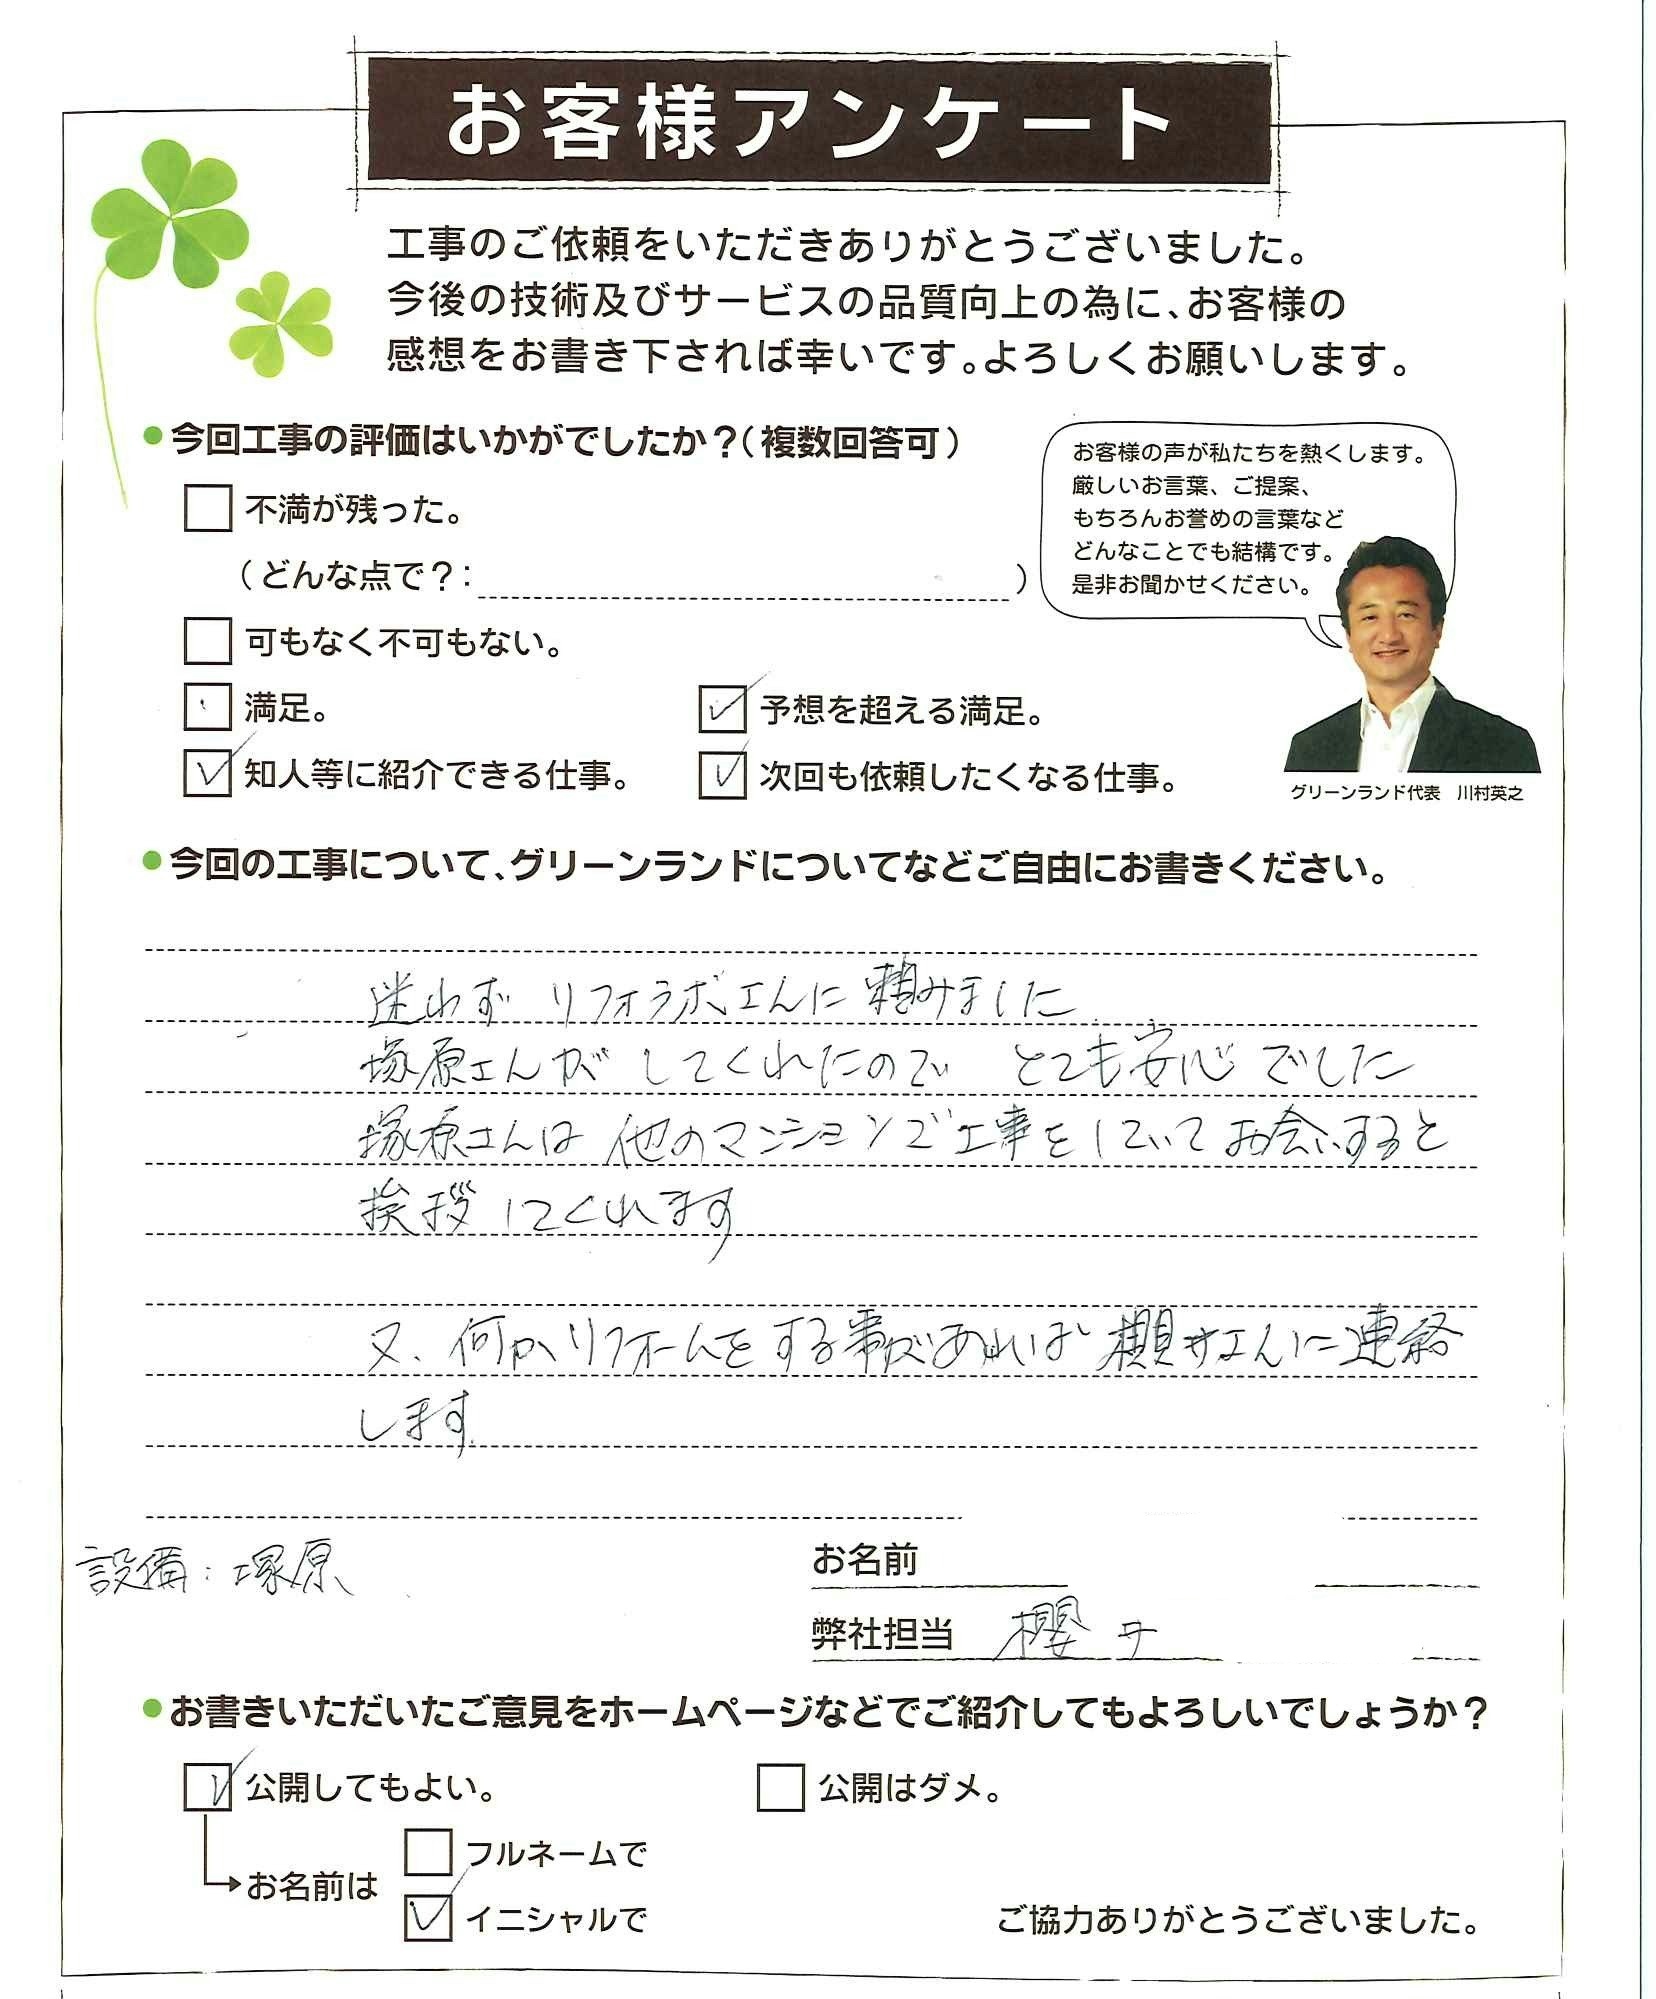 お客様アンケート
工事のご依頼をいただきありがとうございました。
今後の技術及びサービスの品質向上の為に、お客様の
感想をお書き下されば幸いです。よろしくお願いします。
●今回工事の評価はいかがでしたか？（複数回答可）
お客様の声が私たちを熱くします。
厳しいお言葉、ご提案、
もちろんお誉めの言葉など
どんなことでも結構です。
是非お聞かせください。
グリーンランド代表　川村英之
不満が残った。
（どんな点で？：　）
可もなく不可もない。
満足。
予想を超える満足。
知人等に紹介できる仕事。
次回も依頼したくなる仕事。
●今回の工事について、グリーンランドについてなどご自由にお書きください。
迷わず リフォラボさんに頼みました
塚原さんが してくれたので とても安心でした
塚原さんは 他のマンションで工事をしていてお会いすると
挨拶してくれます
又、何かリフォームをする事があれば 櫻井さんに連絡
します
設備：塚原
お名前
弊社担当 櫻井
●お書きいただいたご意見をホームページなどでご紹介してもよろしいでしょうか？
公開してもよい。
公開はダメ。
お名前は
フルネームで
イニシャルで
ご協力ありがとうございました。